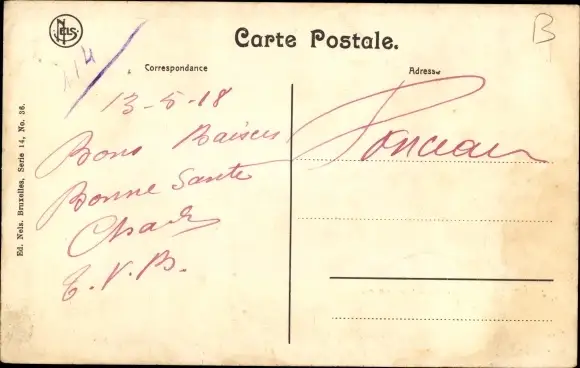 NELS
B
114
Carte Postale.
Correspondance
Adresse
13-5-18
Bons Baisers
Bonne Santé
Charles
T.V.B.
Ponceau
Ed. Nels, Bruxelles, Serie 14, No. 36.